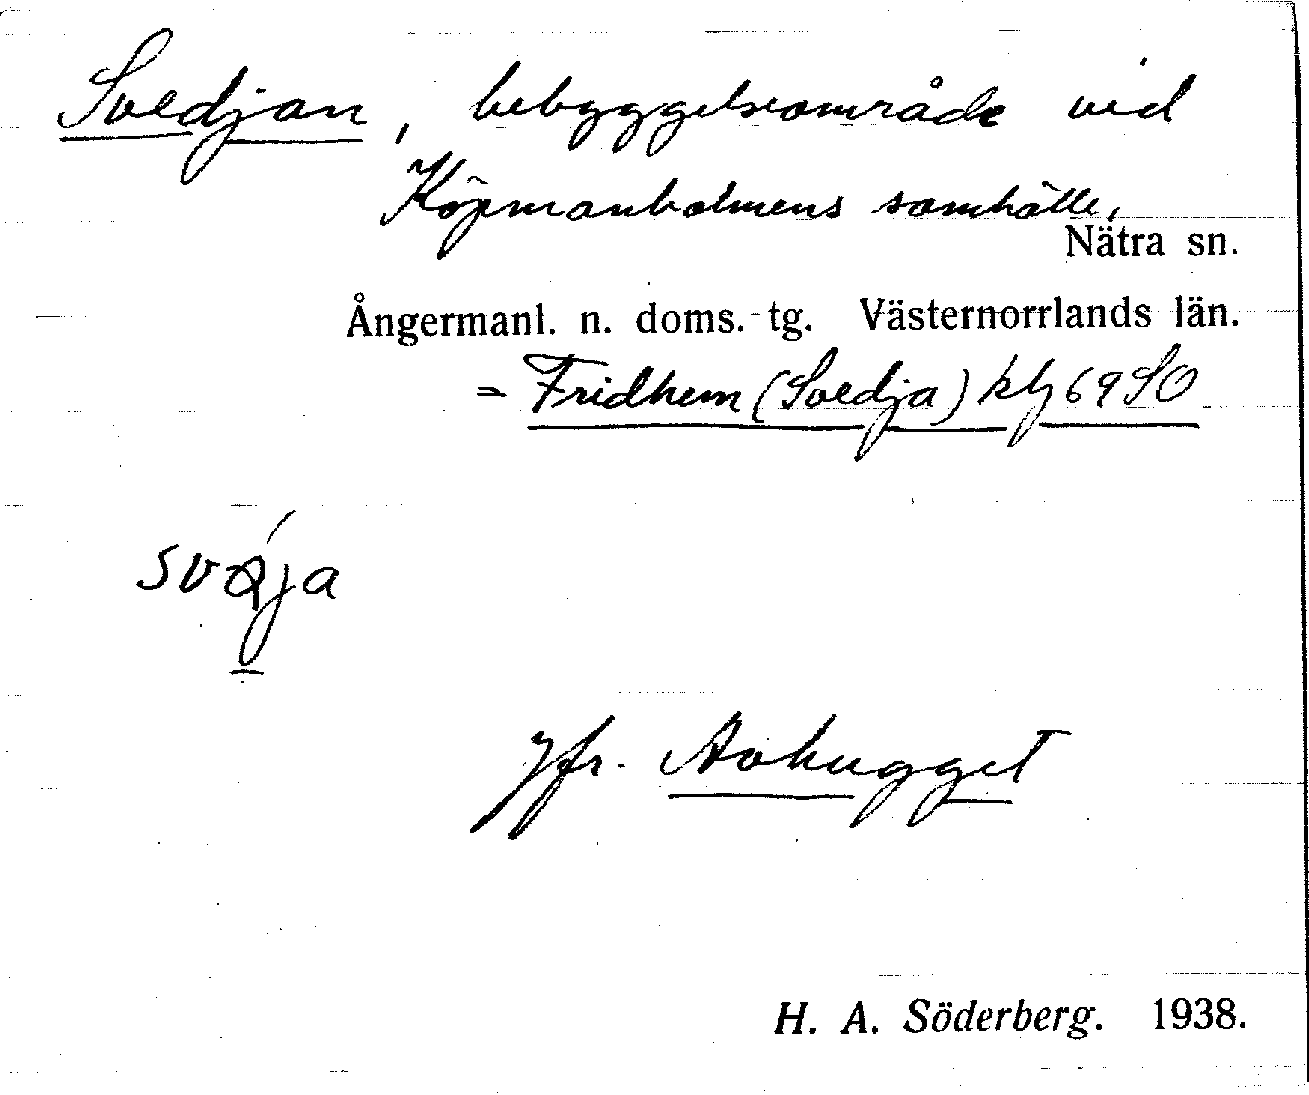 Svedjan, bebyggelseområde vid
Köpmanholmens samhälle,
Nätra sn.
Ångermanl. n. doms. tg. Västernorrlands län.
= Fridhem (Svedja) klj 69 SO
Jfr. Avhugget
H. A. Söderberg. 1938.